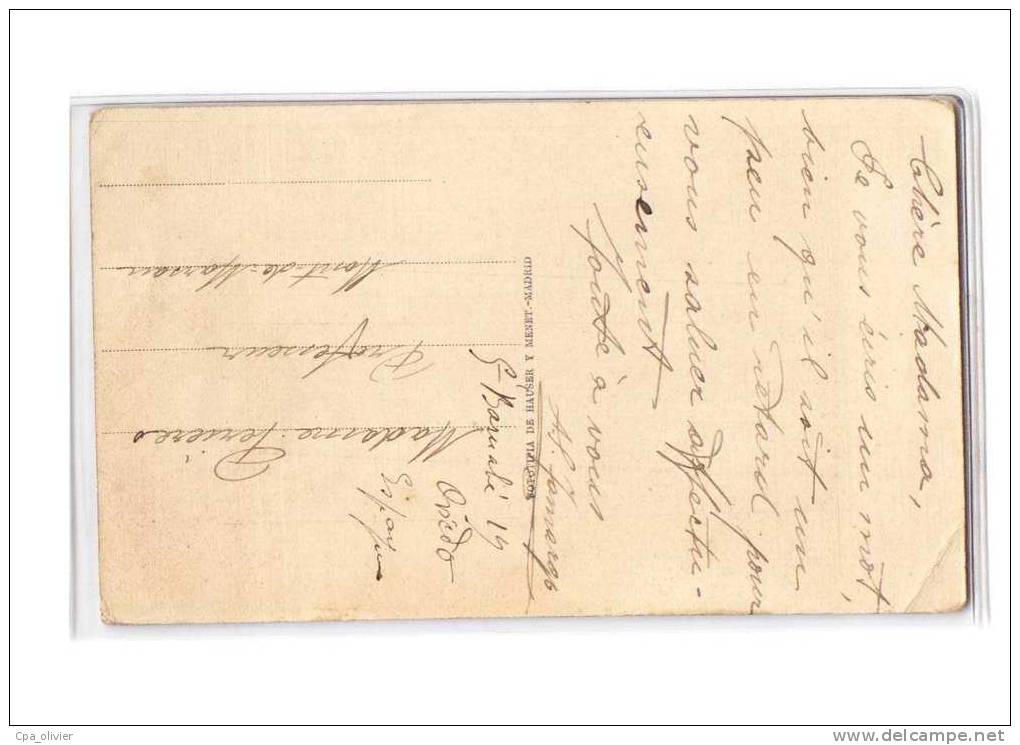 Chère Madama,
Je vous écris un mot,
bien qu'il soit un
peu en rétard pour
vous saluer afféctu-
eusement
toute à vous
A. Camargo
FOTOTIPIA DE HAUSER Y MENET.-MADRID
Sn Bernabé 14
Oviedo
Madame
Professeur
Mont-de-Marsan
Cpa_olivier
www.delcampe.net